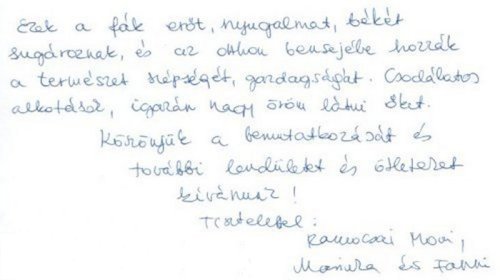 Ezek a fák erőt, nyugalmat, békét
sugároznak, és az otthon bensejébe hozzák
a természet szépségét, gazdagságát. Csodálatos
alkotások, igazán nagy öröm látni őket.
Köszönjük a bemutatkozását és
további lendületet és ötleteket
kívánunk!
Tisztelettel:
Mariska és Fanni